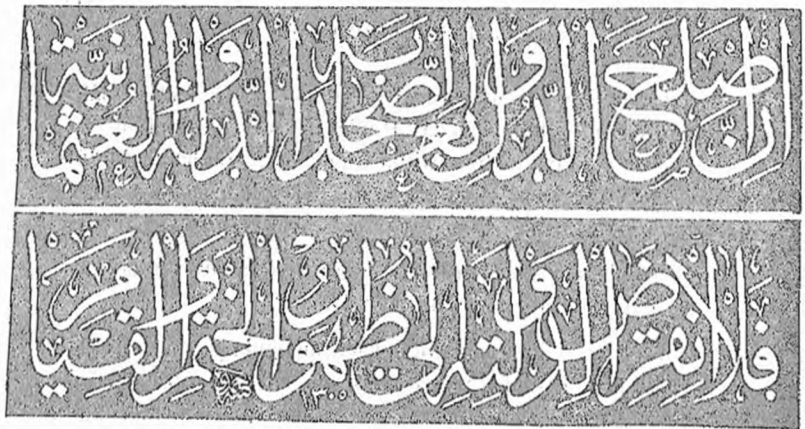 اِنَّ اصلح الدّول بعد الصّحابة الدّولة العثمانيّة
فلا انقراض لدولته الى ظهور الختم والقيام